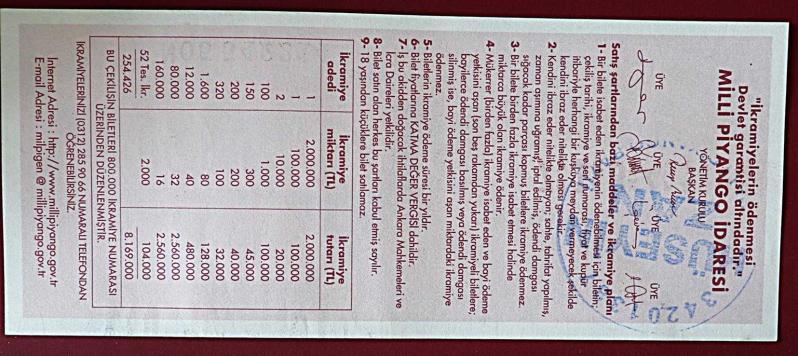 "İkramiyelerin ödenmesi
Devlet garantisi altındadır."
MİLLİ PİYANGO İDARESİ
YÖNETİM KURULU
BAŞKAN
ÜYE ÜYE ÜYE ÜYE
Satış şartlarından bazı maddeler ve ikramiye planı
1- Bir bilete isabet eden ikramiyenin ödenebilmesi için biletin;
çekiliş tarihi, ikramiye ve seri numarası, fiyat ve kupür
itibariyle herhangi bir kuşkuya meydan vermeyecek şekilde
kendini ibraz eder nitelikte olması gerekir.
2- Kendini ibraz eder nitelikte olmayan, sahte, tahrifat yapılmış,
zaman aşımına uğramış, iptal edilmiş, ödendi damgası
sığacak kadar parçası kopmuş biletlere ikramiye ödenmez.
3- Bir bilete birden fazla ikramiye isabet etmesi halinde
miktarca büyük olan ikramiye ödenir.
4- Mükerrer (birden fazla) ikramiye isabet eden ve bayi ödeme
yetkisini aşan (son beş rakamından yukarı) ikramiyeli biletlere;
bayilerce ödendi damgası basılmış veya ödendi damgası
silinmiş ise, bayi ödeme yetkisini aşan miktardaki ikramiye
ödenmez.
5- Biletlerin ikramiye ödeme süresi bir yıldır.
6- Bilet fiyatlarına KATMA DEĞER VERGİSİ dahildir.
7- İş bu akidden doğacak ihtilaflarda Ankara Mahkemeleri ve
İcra Daireleri yetkilidir.
8- Bilet satın alan herkes bu şartları kabul etmiş sayılır.
9- 18 yaşından küçüklere bilet satılamaz.
İkramiye adedi İkramiye miktarı (TL) İkramiye tutarı (TL)
1 2.000.000 2.000.000
1 100.000 100.000
2 10.000 20.000
100 1.000 100.000
150 300 45.000
200 200 40.000
320 100 32.000
1.600 80 128.000
12.000 40 480.000
80.000 32 2.560.000
160.000 16 2.560.000
52 Tes. İkr. 2.000 104.000
254.426 8.169.000
BU ÇEKİLİŞİN BİLETLERİ 800.000 İKRAMİYE NUMARASI
ÜZERİNDEN DÜZENLENMİŞTİR.
İKRAMİYELERİNİZİ (0312) 285 90 66 NUMARALI TELEFONDAN
ÖĞRENEBİLİRSİNİZ.
Internet Adresi : http://www.millipiyango.gov.tr
E-mail Adresi : milpigen @ millipiyango.gov.tr